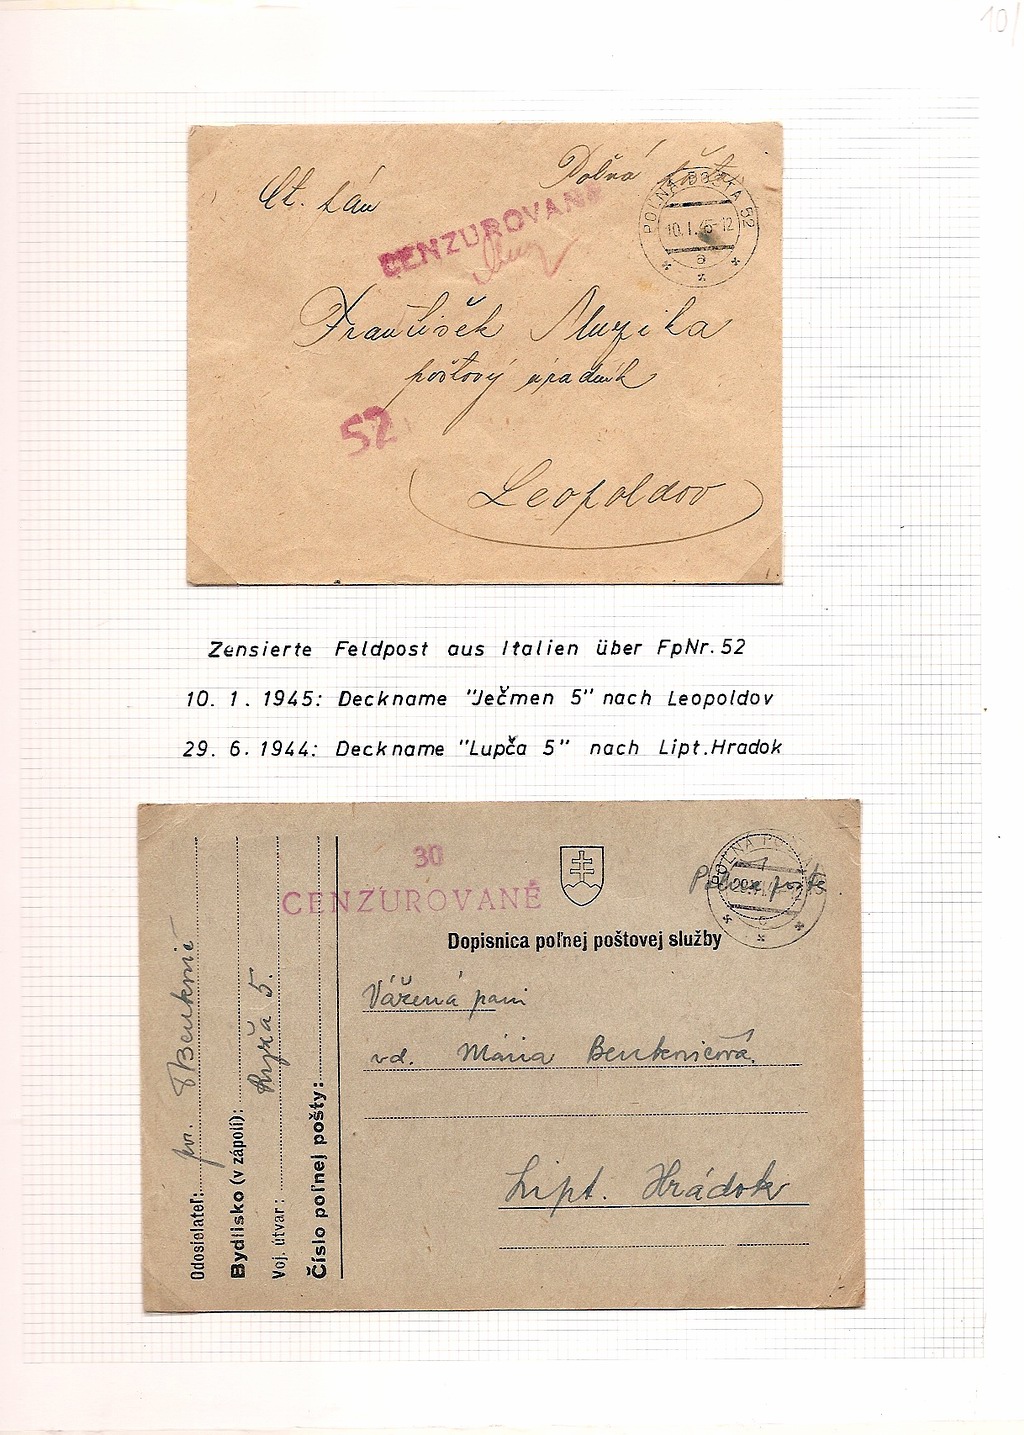 10/
Poľná pošta
Ct. pán
CENZUROVANÉ
POĽNÁ POŠTA 52
10. I. 45-12
a
František Muzika
poštový úradník
52
Leopoldov
Zensierte Feldpost aus Italien über FpNr. 52
10. 1. 1945: Deckname "Ječmen 5" nach Leopoldov
29. 6. 1944: Deckname "Lupča 5" nach Lipt.Hradok
30
CENZUROVANÉ
POĽNÁ
Poľná pošta
Dopisnica poľnej poštovej služby
Vážená pani
vd. Mária Benkovičová
Lipt. Hrádok
Odosielateľ:
Bydlisko (v zápolí):
Voj. útvar: Ryža 5.
Číslo poľnej pošty: